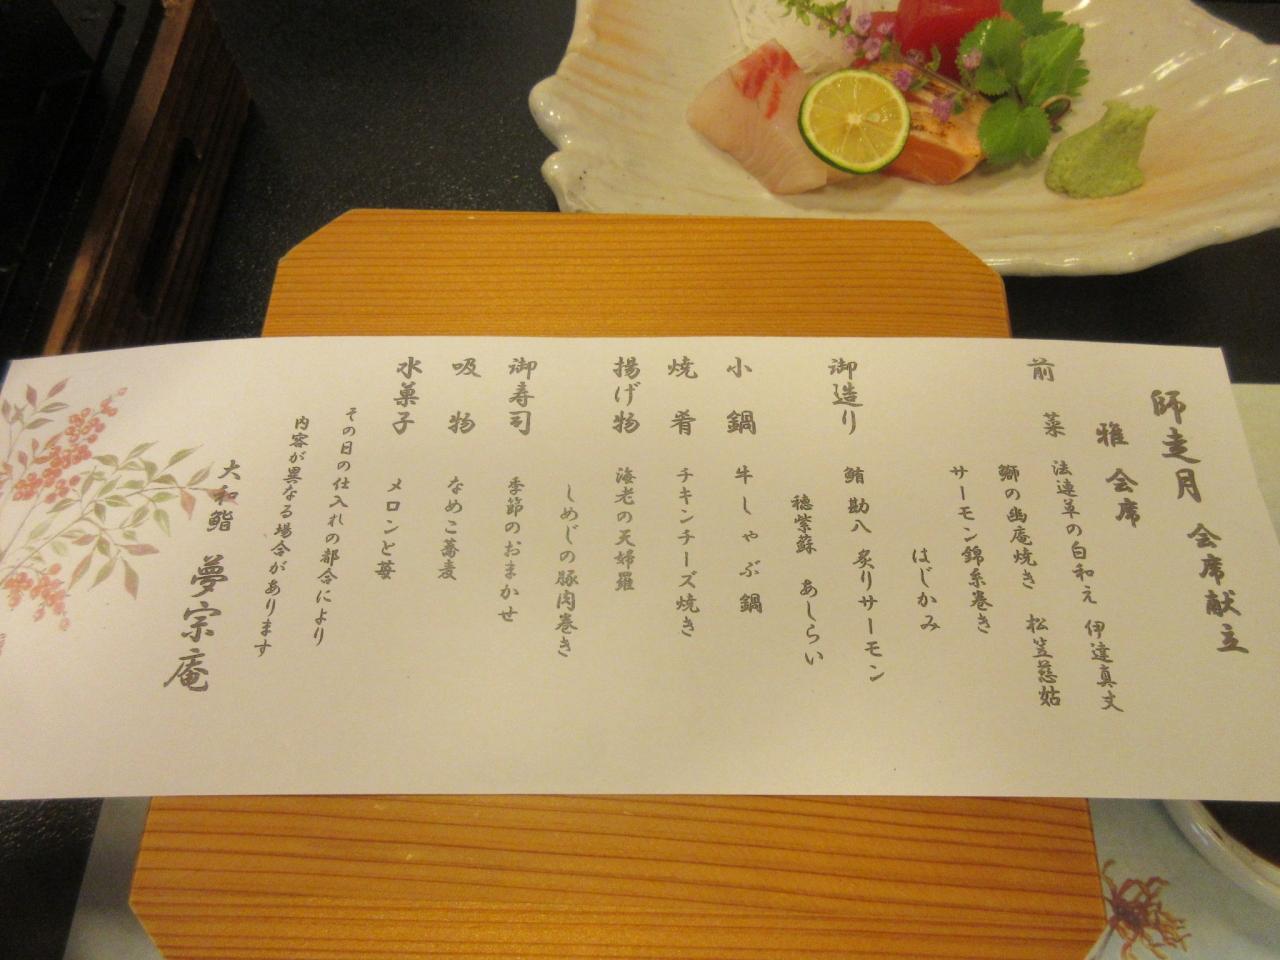 師走月 会席献立
雅 会席
前 菜 法連草の白和え 伊達真丈
鰤の幽庵焼き 松笠慈姑
サーモン錦糸巻き
はじかみ
御造り 鮪 勘八 炙りサーモン
穂紫蘇 あしらい
小 鍋 牛しゃぶ鍋
焼 肴 チキンチーズ焼き
揚げ物 海老の天婦羅
しめじの豚肉巻き
御寿司 季節のおまかせ
吸 物 なめこ蕎麦
水菓子 メロンと苺
その日の仕入れの都合により
内容が異なる場合があります
大和鮨 夢宗庵